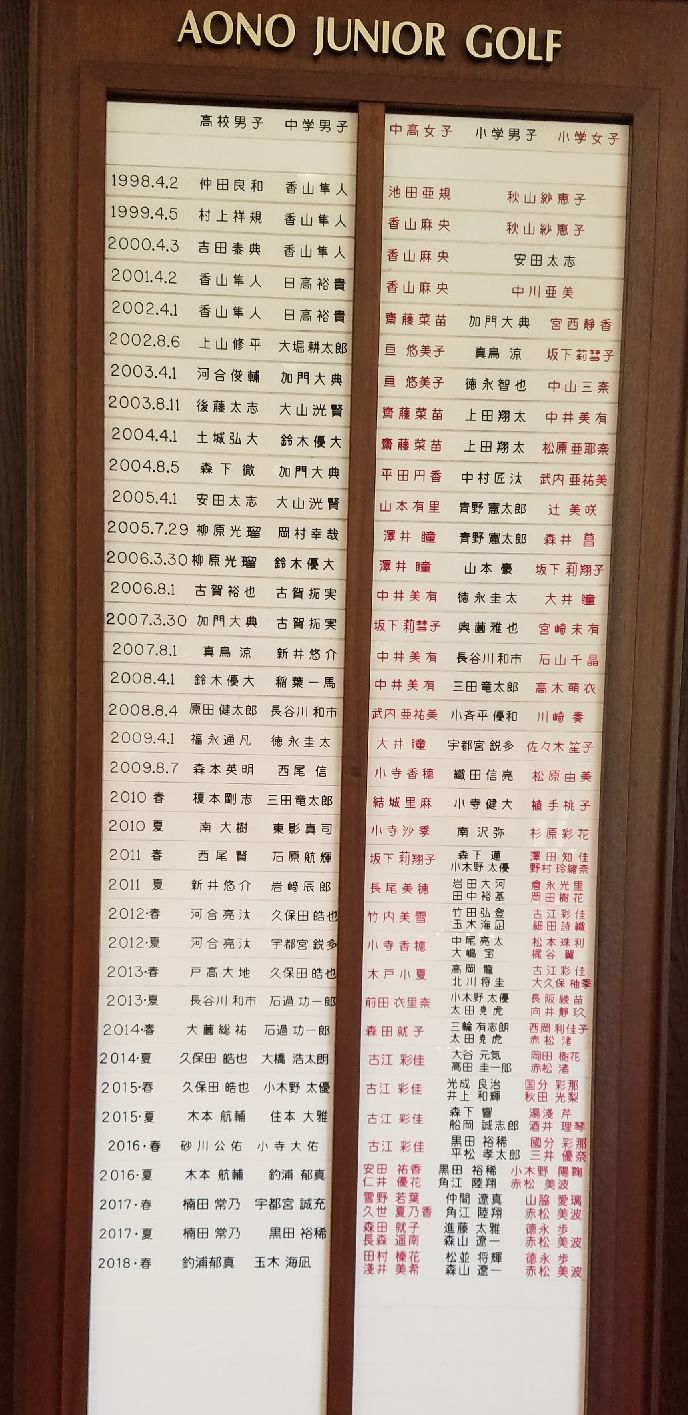 AONO JUNIOR GOLF
高校男子 中学男子 中高女子 小学男子 小学女子
1998.4.2 仲田良和 香山隼人 池田亜規 秋山紗恵子
1999.4.5 村上祥規 香山隼人 香山麻央 秋山紗恵子
2000.4.3 吉田泰典 香山隼人 香山麻央 安田太志
2001.4.2 香山隼人 日高裕貴 香山麻央 中川亜美
2002.4.1 香山隼人 日高裕貴 齋藤菜苗 加門大典 宮西靜香
2002.8.6 上山修平 大堀耕太郎 亘悠美子 真鳥涼 坂下莉彗子
2003.4.1 河合俊輔 加門大典 亘悠美子 徳永智也 中山三奈
2003.8.11 後藤太志 大山洸賢 齋藤菜苗 上田翔太 中井美有
2004.4.1 土城弘大 鈴木優大 齋藤菜苗 上田翔太 松原亜耶奈
2004.8.5 森下徹 加門大典 平田円香 中村匠汰 武内亜祐美
2005.4.1 安田太志 大山洸賢 山本有里 青野憲太郎 辻美咲
2005.7.29 柳原光瑠 岡村幸哉 澤井瞳 青野憲太郎 森井菖
2006.3.30 柳原光瑠 鈴木優大 澤井瞳 山本豪 坂下莉翔子
2006.8.1 古賀裕也 古賀拓実 中井美有 徳永圭太 大井瞳
2007.3.30 加門大典 古賀拓実 坂下莉彗子 奥薗雅也 宮崎未有
2007.8.1 真鳥涼 新井悠介 中井美有 長谷川和市 石山千晶
2008.4.1 鈴木優大 稲葉一馬 中井美有 三田竜太郎 高木萌衣
2008.8.4 原田健太郎 長谷川和市 武内亜祐美 小斉平優和 川崎奏
2009.4.1 福永通凡 徳永圭太 大井瞳 宇都宮鋭多 佐々木笙子
2009.8.7 森本英明 西尾信 小寺香穂 織田信亮 松原由美
2010 春 榎本剛志 三田竜太郎 結城里麻 小寺健大 植手桃子
2010 夏 南大樹 東影真司 小寺沙季 南沢弥 杉原彩花
2011 春 西尾賢 石原航輝 坂下莉翔子 森下蓮 澤田知佳
小木野太優 野村玲緒奈
2011 夏 新井悠介 岩﨑辰郎 長尾美穂 岩田大河 倉永光里
田中裕基 岡田樹花
2012・春 河合亮汰 久保田皓也 竹内美雪 竹田弘登 古江彩佳
玉木海凪 細田詩織
2012・夏 河合亮汰 宇都宮鋭多 小寺香穂 中尾亮太 松本珠利
大嶋宝 梶谷翼
2013・春 戸高大地 久保田皓也 木戸小夏 高岡龍 古江彩佳
北川将圭 大久保柚季
2013・夏 長谷川和市 石過功一郎 前田衣里奈 小木野太優 長阪綾苗
太田堯虎 向井靜玖
2014・春 大薗総祐 石過功一郎 森田就子 三輪有志朗 西岡利佳子
太田堯虎 赤松渚
2014・夏 久保田皓也 大橋浩太朗 古江彩佳 大谷元気 岡田樹花
髙田圭一郎 赤松渚
2015・春 久保田皓也 小木野太優 古江彩佳 光成良治 国分彩那
井上和輝 秋田光梨
2015・夏 木本航輔 住本大雅 古江彩佳 森下響 湯淺芹
船岡誠志郎 酒井理琴
2016・春 砂川公佑 小寺大佑 古江彩佳 黒田裕稀 國分彩那
平松孝太郎 三井優奈
2016・夏 木本航輔 釣浦郁真 安田祐香 黒田裕稀 小木野陽鞠
仁井優花 角江陸翔 赤松美波
2017・春 楠田常乃 宇都宮誠充 雪野若葉 仲間遼真 山脇愛璃
久世夏乃香 角江陸翔 赤松美波
2017・夏 楠田常乃 黒田裕稀 森田就子 進藤太雅 德永歩
長森遥南 森山遼一 赤松美波
2018・春 釣浦郁真 玉木海凪 田村榛花 松並将輝 德永歩
淺井美希 森山遼一 赤松美波